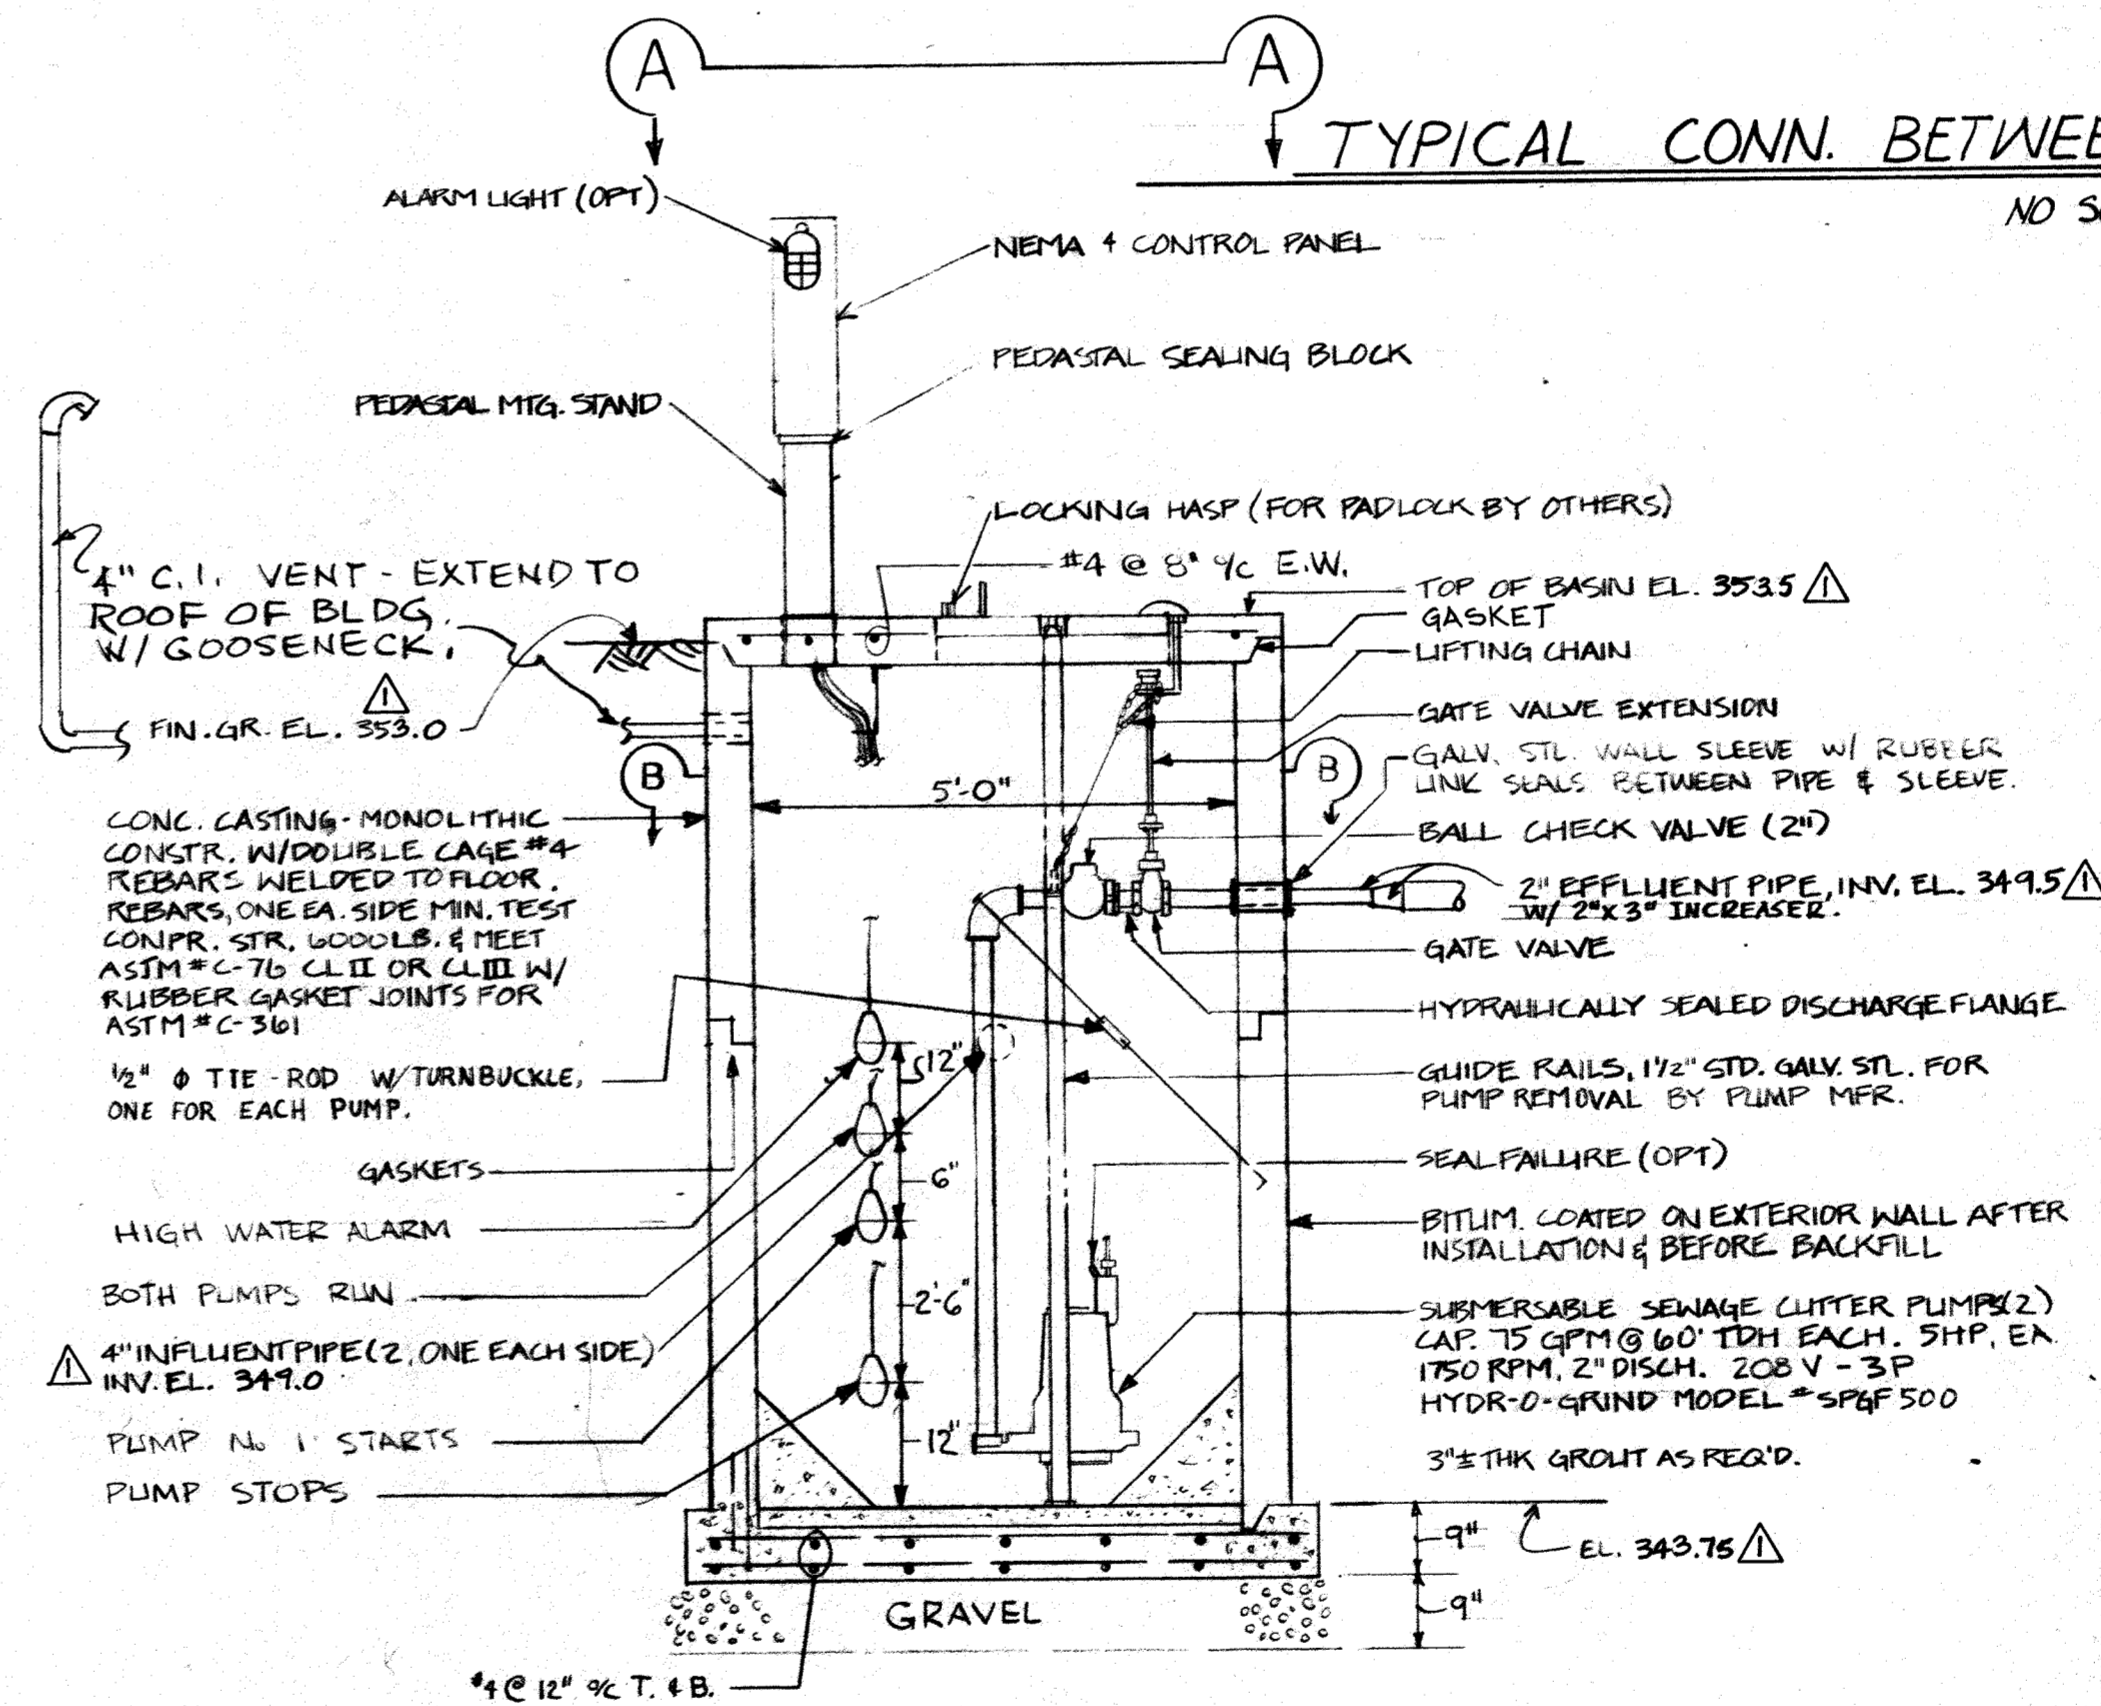 A
A
TYPICAL CONN. BETWEE
NO S
ALARM LIGHT (OPT)
NEMA 4 CONTROL PANEL
PEDASTAL SEALING BLOCK
PEDASTAL MTG. STAND
LOCKING HASP (FOR PADLOCK BY OTHERS)
#4 @ 8" o/c E.W.
4" C.I. VENT - EXTEND TO
ROOF OF BLDG.
W/ GOOSENECK.
1
FIN. GR. EL. 353.0
TOP OF BASIN EL. 353.5 1
GASKET
LIFTING CHAIN
GATE VALVE EXTENSION
GALV. STL. WALL SLEEVE W/ RUBBER
LINK SEALS BETWEEN PIPE & SLEEVE.
B
B
5'-0"
BALL CHECK VALVE (2")
2" EFFLUENT PIPE, INV. EL. 349.5 1
W/ 2"X 3" INCREASER.
GATE VALVE
HYDRAULICALLY SEALED DISCHARGE FLANGE
GUIDE RAILS, 1 1/2" STD. GALV. STL. FOR
PUMP REMOVAL BY PUMP MFR.
SEAL FAILURE (OPT)
BITUM. COATED ON EXTERIOR WALL AFTER
INSTALLATION & BEFORE BACKFILL
SUBMERSABLE SEWAGE CUTTER PUMPS(2)
CAP. 75 GPM @ 60' TDH EACH. 5HP, EA
1750 RPM, 2" DISCH. 208 V - 3P
HYDR-O-GRIND MODEL #SPGF 500
3"± THK GROUT AS REQ'D.
CONC. CASTING - MONOLITHIC
CONSTR. W/DOUBLE CAGE #4
REBARS WELDED TO FLOOR.
REBARS, ONE EA. SIDE MIN. TEST
COMPR. STR. 6000LB. & MEET
ASTM #C-76 CL II OR CL III W/
RUBBER GASKET JOINTS FOR
ASTM #C-361
1/2" ϕ TIE-ROD W/TURNBUCKLE,
ONE FOR EACH PUMP.
GASKETS
HIGH WATER ALARM
BOTH PUMPS RUN
1 4" INFLUENT PIPE (2, ONE EACH SIDE)
INV. EL. 349.0
PUMP No 1 STARTS
PUMP STOPS
12"
6"
2'-6"
12"
9"
9"
EL. 343.75 1
GRAVEL
#4 @ 12" o/c T. & B.